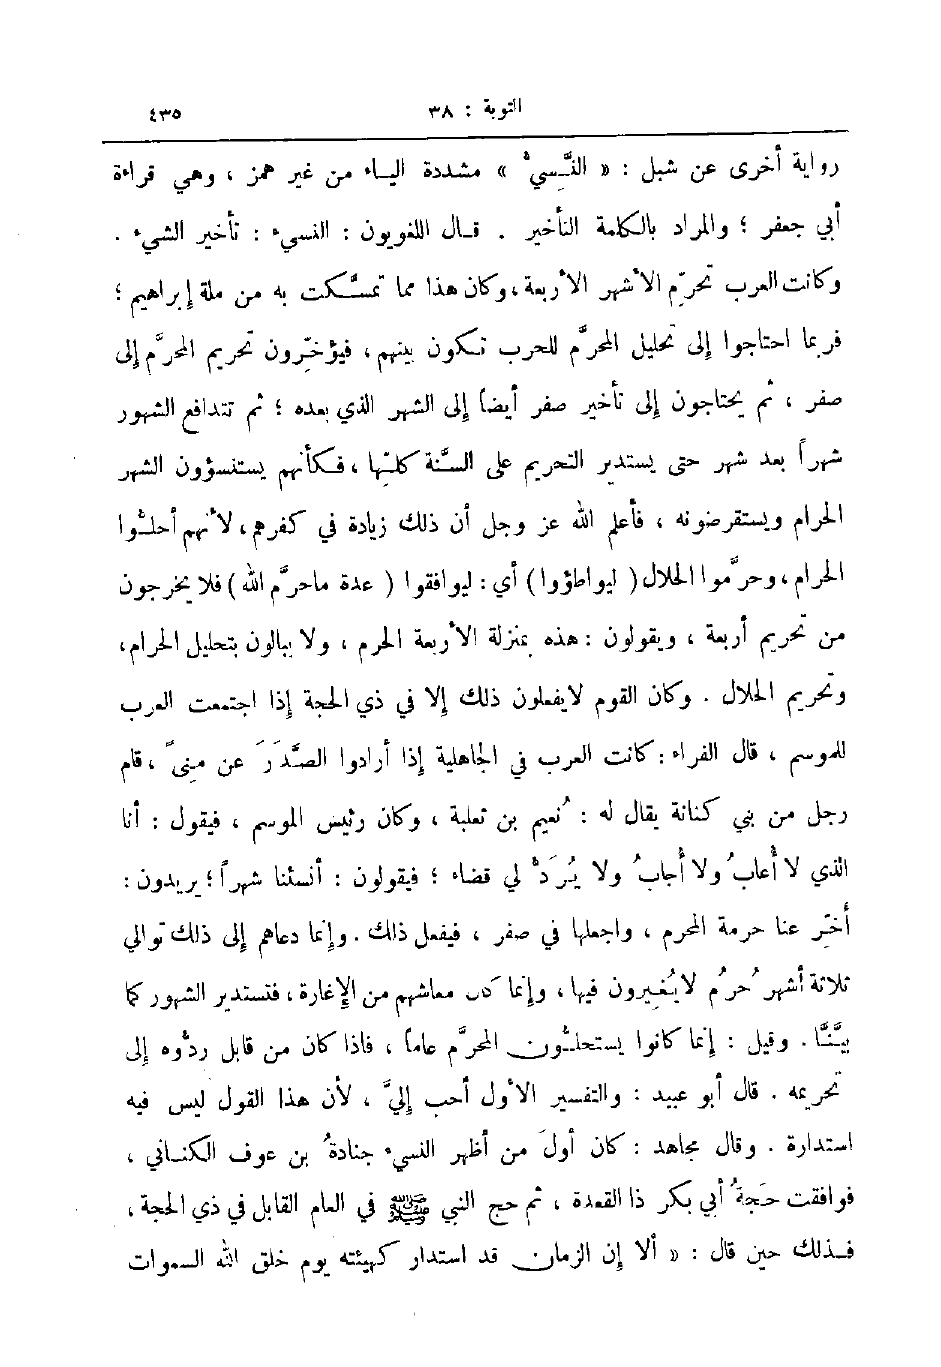 التوبة : ٣٨ ٤٣٥
رواية أخرى عن شبل : « النَّسِيُّ » مشددة الياء من غير همز ، وهي قراءة
أبي جعفر ؛ والمراد بالكلمة التأخير . قال اللغويون : النسيء : تأخير الشيء .
وكانت العرب تحرّم الأشهر الأربعة ، وكان هذا مما تمسَّكت به من ملة إبراهيم ؛
فربما احتاجوا إلى تحليل المحرَّم للحرب تكون بينهم ، فيؤخِّرون تحريم المحرَّم إلى
صفر ، ثم يحتاجون إلى تأخير صفر أيضاً إلى الشهر الذي بعده ؛ ثم تتدافع الشهور
شهراً بعد شهر حتى يستدير التحريم على السَّنة كلِّها ، فكأنهم يستنسؤون الشهر
الحرام ويستقرضونه ، فأعلم الله عز وجل أن ذلك زيادة في كفرهم ، لأنهم أحلُّوا
الحرام ، وحرَّموا الحلال ( ليواطؤوا ) أي : ليوافقوا ( عدة ماحرَّم الله ) فلا يخرجون
من تحريم أربعة ، ويقولون : هذه بمنزلة الأربعة الحرم ، ولا يبالون بتحليل الحرام ،
وتحريم الحلال . وكان القوم لايفعلون ذلك إلا في ذي الحجة إذا اجتمعت العرب
للموسم ، قال الفراء : كانت العرب في الجاهلية إذا أرادوا الصَّدَرَ عن مِنىً ، قام
رجل من بني كنانة يقال له : نُعيم بن ثعلبة ، وكان رئيس الموسم ، فيقول : أنا
الذي لا أُعابُ ولا أُجابُ ولا يُرَدُّ لي قضاء ؛ فيقولون : أنسئنا شهراً ؛ يريدون :
أخِّر عنا حرمة المحرم ، واجعلها في صفر ، فيفعل ذلك . وإنما دعاهم إلى ذلك توالي
ثلاثة أشهر حُرُم لايُغيرون فيها ، وإنما كان معاشهم من الإغارة ، فتستدير الشهور كما
بيَّنَّا . وقيل : إنما كانوا يستحلُّون المحرَّم عاماً ، فاذا كان من قابل ردُّوه إلى
تحريمه . قال أبو عبيد : والتفسير الأول أحب إليَّ ، لأن هذا القول ليس فيه
استدارة . وقال مجاهد : كان أولَ من أظهر النسيء جنادةُ بن عوف الكناني ،
فوافقت حَجةُ أبي بكر ذا القعدة ، ثم حج النبي ﷺ في العام القابل في ذي الحجة ،
فذلك حين قال : « ألا إن الزمان قد استدار كهيئته يوم خلق الله السموات